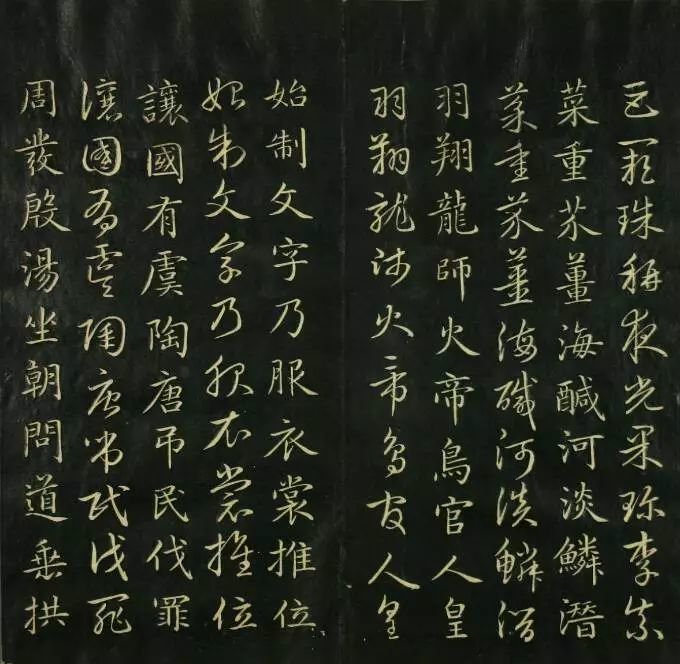 巨闕珠稱夜光果珍李柰
菜重芥薑海醎河淡鱗潛
菜重芥薑海醎河淡鱗潛
羽翔龍師火帝鳥官人皇
羽翔龍師火帝鳥官人皇
始制文字乃服衣裳推位
始制文字乃服衣裳推位
讓國有虞陶唐弔民伐罪
讓國有虞陶唐弔民伐罪
周發殷湯坐朝問道垂拱